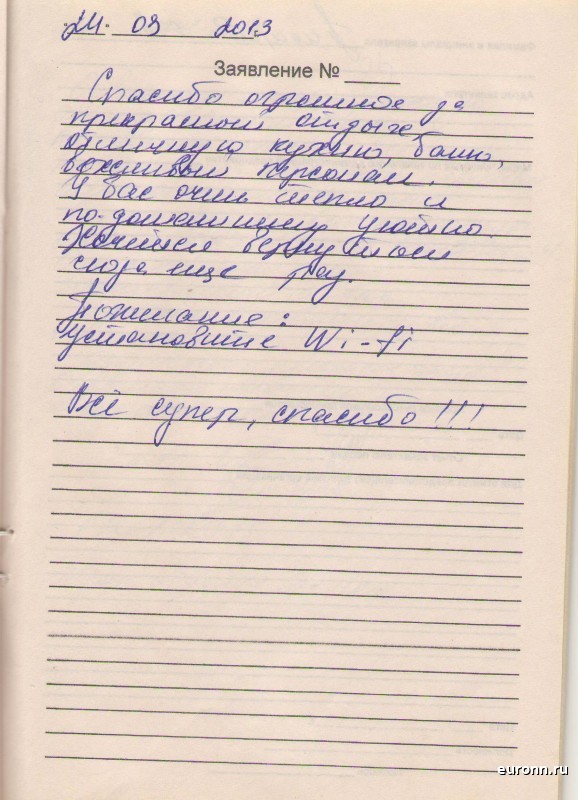 "24" 03 2013
Заявление №
Спасибо огромное за
прекрасный отдых,
отличную кухню, баню,
вежливый персонал.
У вас очень тепло и
по-домашнему уютно.
Хочется вернуться
сюда еще раз.
Пожелание:
установите Wi-fi
Всё супер, спасибо!!!
euronn.ru